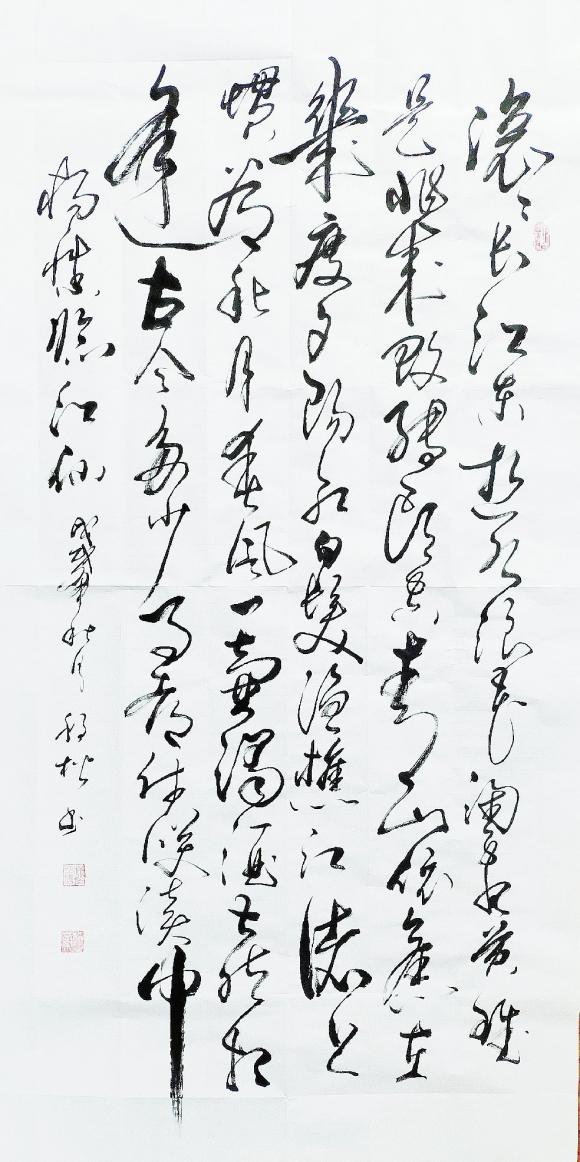 滚〻长江东逝水浪花淘尽英雄
是非成败转头空青山依旧在
幾度夕阳红白髮渔樵江渚上
惯看秋月春风一壶濁酒喜相
逢古今多少事都付笑谈中
杨慎临江仙 秋月 书